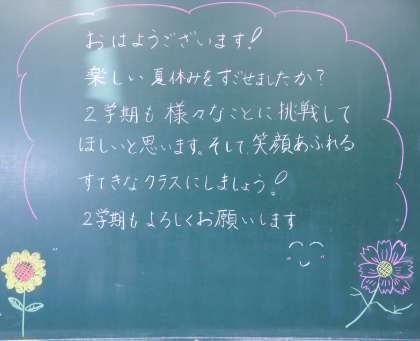 おはようございます!
楽しい夏休みをすごせましたか?
2学期も様々なことに挑戦して
ほしいと思います。そして笑顔あふれる
すてきなクラスにしましょう!
2学期もよろしくお願いします